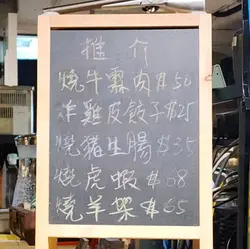 推介
燒牛霖肉$50
炸雞皮餃子$25
燒豬生腸$35
燒虎蝦$68
燒羊架$65